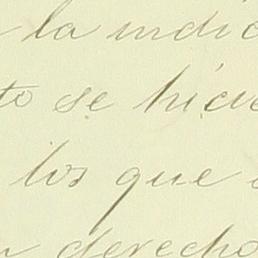 la indic
to se hicie
los que
derecho